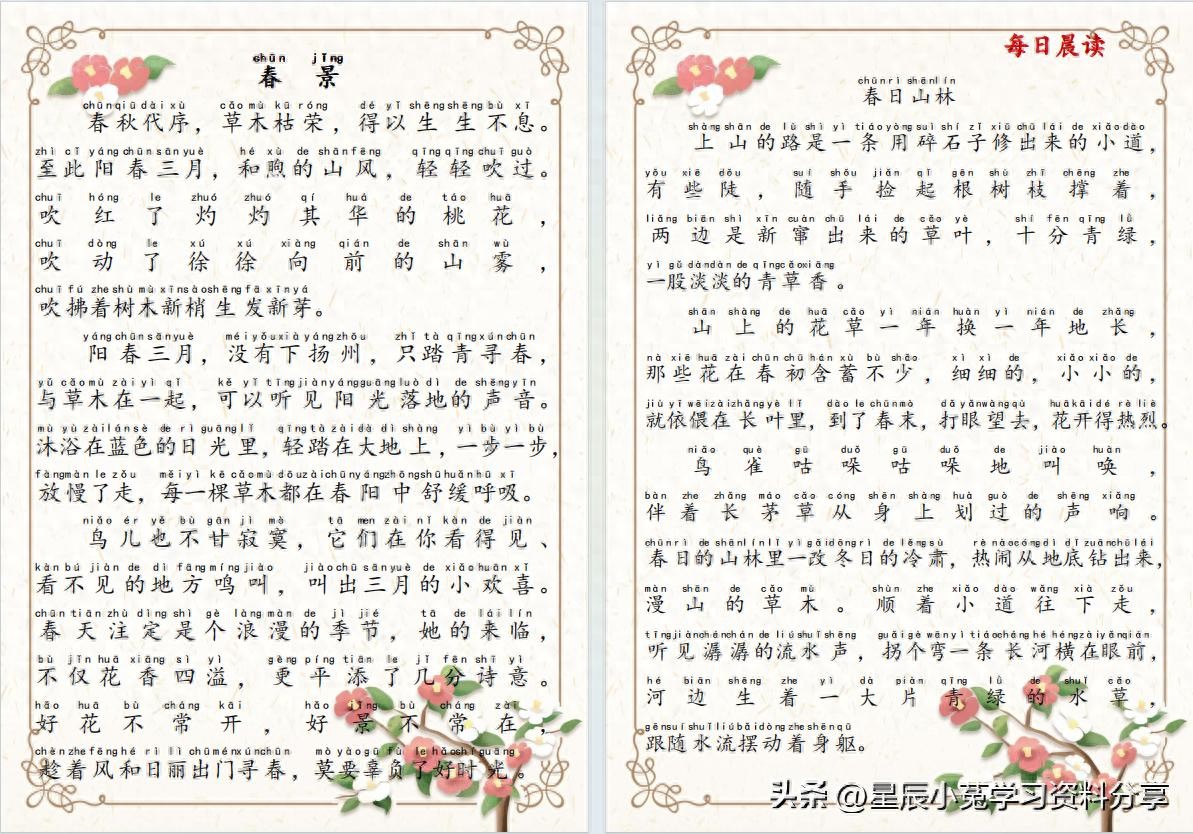 chūn jǐng
春 景
chūn qiū dài xù cǎo mù kū róng dé yǐ shēng shēng bù xī
春秋代序，草木枯荣，得以生生不息。
zhì cǐ yáng chūn sān yuè hé xù de shān fēng qīng qīng chuī guò
至此阳春三月，和煦的山风，轻轻吹过。
chuī hóng le zhuó zhuó qí huá de táo huā
吹红了灼灼其华的桃花，
chuī dòng le xú xú xiàng qián de shān wù
吹动了徐徐向前的山雾，
chuī fú zhe shù mù xīn sào shēng fā xīn yá
吹拂着树木新梢生发新芽。
yáng chūn sān yuè méi yǒu xià yáng zhōu zhǐ tà qīng xún chūn
阳春三月，没有下扬州，只踏青寻春，
yǔ cǎo mù zài yì qǐ kě yǐ tīng jiàn yáng guāng luò dì de shēng yīn
与草木在一起，可以听见阳光落地的声音。
mù yù zài lán sè de rì guāng lǐ qīng tà zài dà dì shàng yí bù yí bù
沐浴在蓝色的日光里，轻踏在大地上，一步一步，
fàng màn le zǒu měi yì kē cǎo mù dōu zài chūn yáng zhōng shū huǎn hū xī
放慢了走，每一棵草木都在春阳中舒缓呼吸。
niǎo ér yě bù gān jì mò tā men zài nǐ kàn de jiàn
鸟儿也不甘寂寞，它们在你看得见、
kàn bú jiàn de dì fāng míng jiào jiào chū sān yuè de xiǎo huān xǐ
看不见的地方鸣叫，叫出三月的小欢喜。
chūn tiān zhù dìng shì gè làng màn de jì jié tā de lái lín
春天注定是个浪漫的季节，她的来临，
bù jǐn huā xiāng sì yì gèng píng tiān le jǐ fēn shī yì
不仅花香四溢，更平添了几分诗意。
hǎo huā bù cháng kāi hǎo jǐng bù cháng zài
好花不常开，好景不常在，
chèn zhe fēng hé rì lì chū mén xún chūn mò yào gū fù le hǎo shí guāng
趁着风和日丽出门寻春，莫要辜负了好时光。
每日晨读
chūn rì shān lín
春日山林
shàng shān de lù shì yì tiáo yòng suì shí zǐ xiū chū lái de xiǎo dào
上山的路是一条用碎石子修出来的小道，
yǒu xiē dǒu suí shǒu jiǎn qǐ gēn shù zhī chēng zhe
有些陡，随手捡起根树枝撑着，
liǎng biān shì xīn cuàn chū lái de cǎo yè shí fēn qīng lǜ
两边是新窜出来的草叶，十分青绿，
yì gǔ dàn dàn de qīng cǎo xiāng
一股淡淡的青草香。
shān shàng de huā cǎo yì nián huàn yì nián de zhǎng
山上的花草一年换一年地长，
nà xiē huā zài chūn chū hán xù bù shǎo xì xì de xiǎo xiǎo de
那些花在春初含蓄不少，细细的，小小的，
jiù yī wēi zài zhǎng yè lǐ dào le chūn mò dǎ yǎn wàng qù huā kāi dé rè liè
就依偎在长叶里，到了春末，打眼望去，花开得热烈。
niǎo què gū duō gū duō de jiào huàn
鸟雀咕哚咕哚地叫唤，
bàn zhe zhǎng máo cǎo cóng shēn shàng huà guò de shēng xiǎng
伴着长茅草从身上划过的声响。
chūn rì de shān lín lǐ yì gǎi dōng rì de lěng sù rè nào cóng dì dǐ zuān chū lái
春日的山林里一改冬日的冷肃，热闹从地底钻出来，
màn shān de cǎo mù shùn zhe xiǎo dào wǎng xià zǒu
漫山的草木。顺着小道往下走，
tīng jiàn chán chán de liú shuǐ shēng guǎi gè wān yì tiáo cháng hé héng zài yǎn qián
听见潺潺的流水声，拐个弯一条长河横在眼前，
hé biān shēng zhe yì dà piàn qīng lǜ de shuǐ cǎo
河边生着一大片青绿的水草，
gēn suí shuǐ liú bǎi dòng zhe shēn qū
跟随水流摆动着身躯。
头条 @星辰小菟学习资料分享